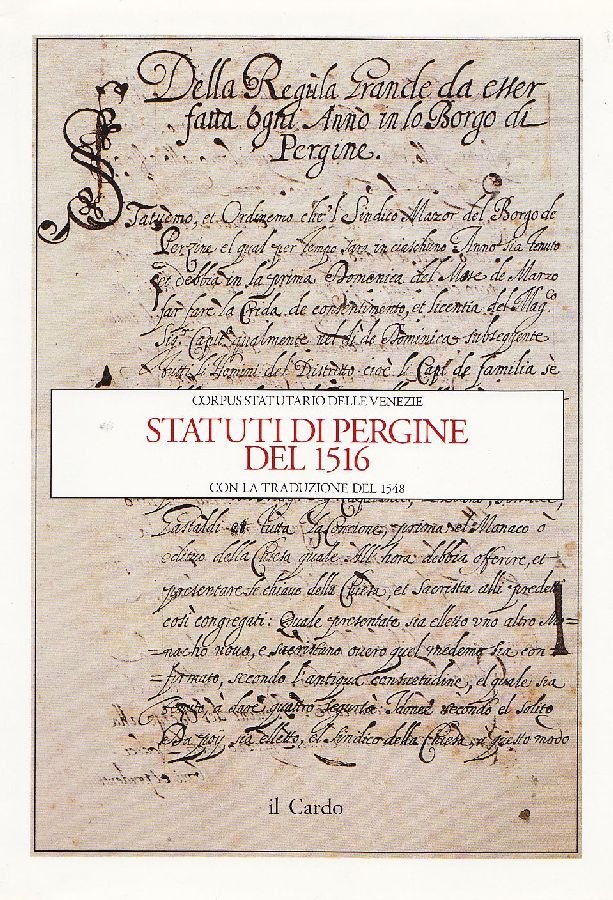 Della Regùla Grande da esser
fatta ogni Anno in lo Borgo di
Pergine.
Statuemo, et Ordinemo che'l Sindico Mazor del Borgo de
Perzine, el qual per tempo sara in ciaschuno Anno sia tenuto
et debbia in la prima Domenica del Mese de Marzo
far fare la Crida de consentimento, et licentia del Mag.co
Sig.r Capit. qualmente nel dì de Dominica subsequente
tutti li Homini del Distritto cioè li Capi de familia sè
CORPUS STATUTARIO DELLE VENEZIE
STATUTI DI PERGINE
DEL 1516
CON LA TRADUZIONE DEL 1548
Gastaldi et tutta la Concione, prima el Monaco ò
della Chiesa quale All'hora debbia offerire, et
presentare le chiave della Chiesa, et Sacrestia alli predetti
così congregati: Quale presentate sia elletto vno altro Mo=
=nacho novo, e overo quel medemo sia con=
=firmato, secondo l'antiqua consuetudine, el quale sia
tenuto à dare quattro segurtà Idonee secondo el solito
Da poy sia elletto, el Sindico della Chiesa, in questo modo
il Cardo